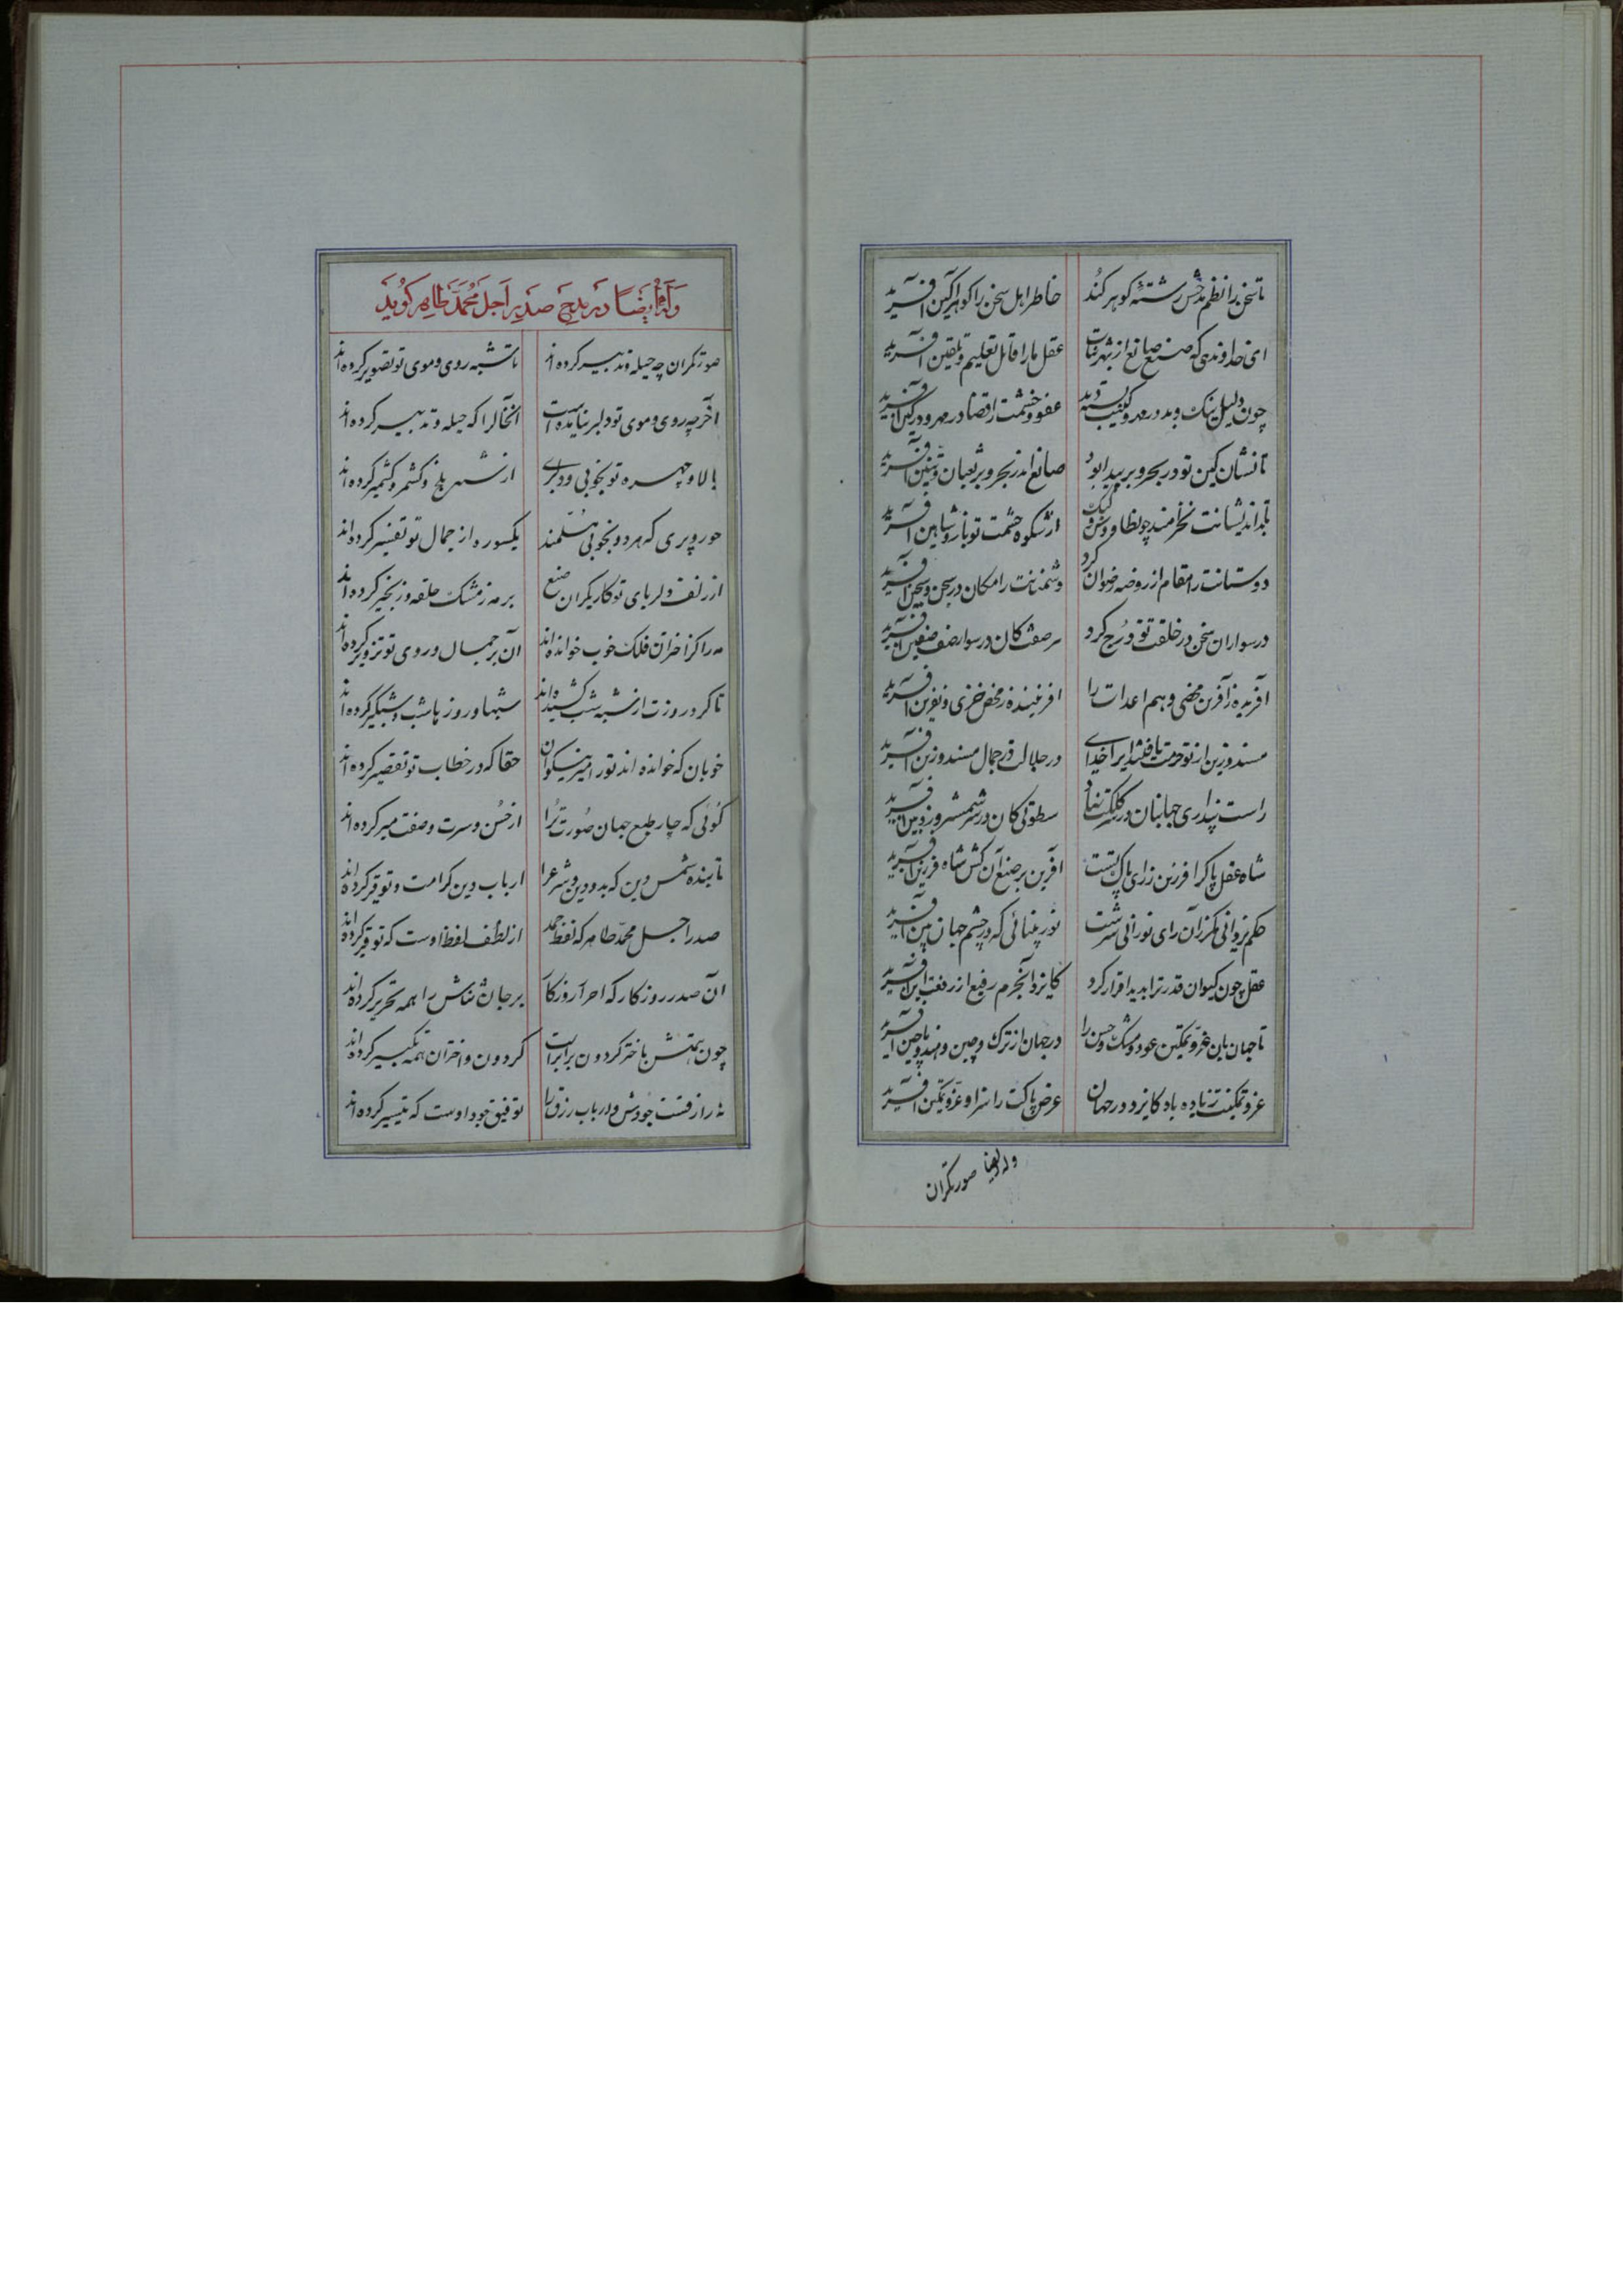 تا سخن را نظم مدحش رشته گوهر کند خاطر اهل سخن را گوهر آگین آفرید
ای خداوندی که صنع صانع از بهر ثنات عقل ما را قابل تعلیم و تلقین آفرید
چون دلیل نیک و بد در مهر و کینت بسته دید عفو و خشمت را قضا در مهر و در کین آفرید
تا نشان کین تو در بحر و بر پیدا بود صانع اندر بحر و بر ثعبان و تنین آفرید
تا بداندیشانت نخرامند چو طاوس و کبک از شکوه حشمت تو باز و شاهین آفرید
دوستانت را مقام از روضه رضوان کرد دشمنانت را مکان در سجن و سجین آفرید
در سواران سخن در خلقت تو درج کرد هر صفت کان در سوار صف صفین آفرید
آفریده ز آفرین محضی و هم اعدات را آفریننده ز محض خزی و نفرین آفرید
مسند و زین از تو حرمت یافتند ایرا خدای در جلالت در جمال مسند و زین آفرید
راست پنداری جهانبان در سر کلکت نهاد سطوتی کان در سر شمشیر و زوبین آفرید
شاه عقل پاک را فرزین ز رای پاک تست آفرین بر صنع آن کش شاه فرزین آفرید
حکم یزدانی مگر از آن رای نورانی سرشت نور بینائی که در چشم جهان بین آفرید
عقل چون کیوان قدر ترا بدید اقرار کرد کایزد انجرم رفیع از رفعت این آفرید
تا جهان بان عز و تمکین عود و مشک و حسن را در جهان از ترک و چین و هند و ماچین آفرید
عز و تمکینت زیاده باد کایزد در جهان عرض پاکت را سزاوار عز و تمکین آفرید
وله ایضا صورتگران
وله ایضا در مدح صدر اجل محمد طاهر گوید
صورتگران چه حیله و تدبیر کرده‌اند تا شبه روی و موی تو تصویر کرده‌اند
آخر چه روی و موی تو دلبر نیامده است آنخال را که حیله و تدبیر کرده‌اند
بالا و چهره تو بخوبی و دلبری از شهر بلخ و کشمر و کشمیر کرده‌اند
حور و پری که هر دو بخوبی مسلمند یکسوره از جمال تو تفسیر کرده‌اند
از زلف دلربای تو کاریگران صنع بر مه ز مشک حلقه و زنجیر کرده‌اند
مه را گر اختران فلک خوب خوانده‌اند آن بر جمال و روی تو تزویر کرده‌اند
تا گرد روزت از شبه شب کشیده‌اند شبها و روز ما شب و شبگیر کرده‌اند
خوبان که خوانده‌اند تو را میر نیکوان حقا که در خطاب تو تقصیر کرده‌اند
گوئی که چار طبع جهان صورت ترا از حسن و سیرت و صفت میر کرده‌اند
تابنده شمس دین که بدو دین و شرع را ارباب دین کرامت و توقیر کرده‌اند
صدر اجل محمد طاهر که لفظ حمد از لطف لفظ اوست که توقیر کرده‌اند
آن صدر روزگار که احرار روزگار بر جان ثناش را همه تحریر کرده‌اند
چون همتش باختر گردون برابر است گردون و اختران همه تکبیر کرده‌اند
نه را ز قسمت جودش در ارباب رزق را توفیق جود اوست که تیسیر کرده‌اند